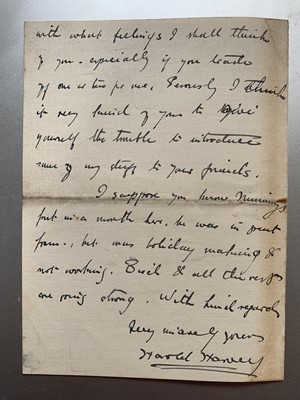 with what feelings I shall think
of you. especially if you
of one as two pr me. Seriously I think
it very kind of you to give
yourself the trouble to introduce
some of my stuff to your friends.
I suppose you know Munnings
put in a month here. he was in great
form. but was holiday making &
not working. & all the rest
are going strong. With kind regards
Very sincerely yours
Harold Harvey